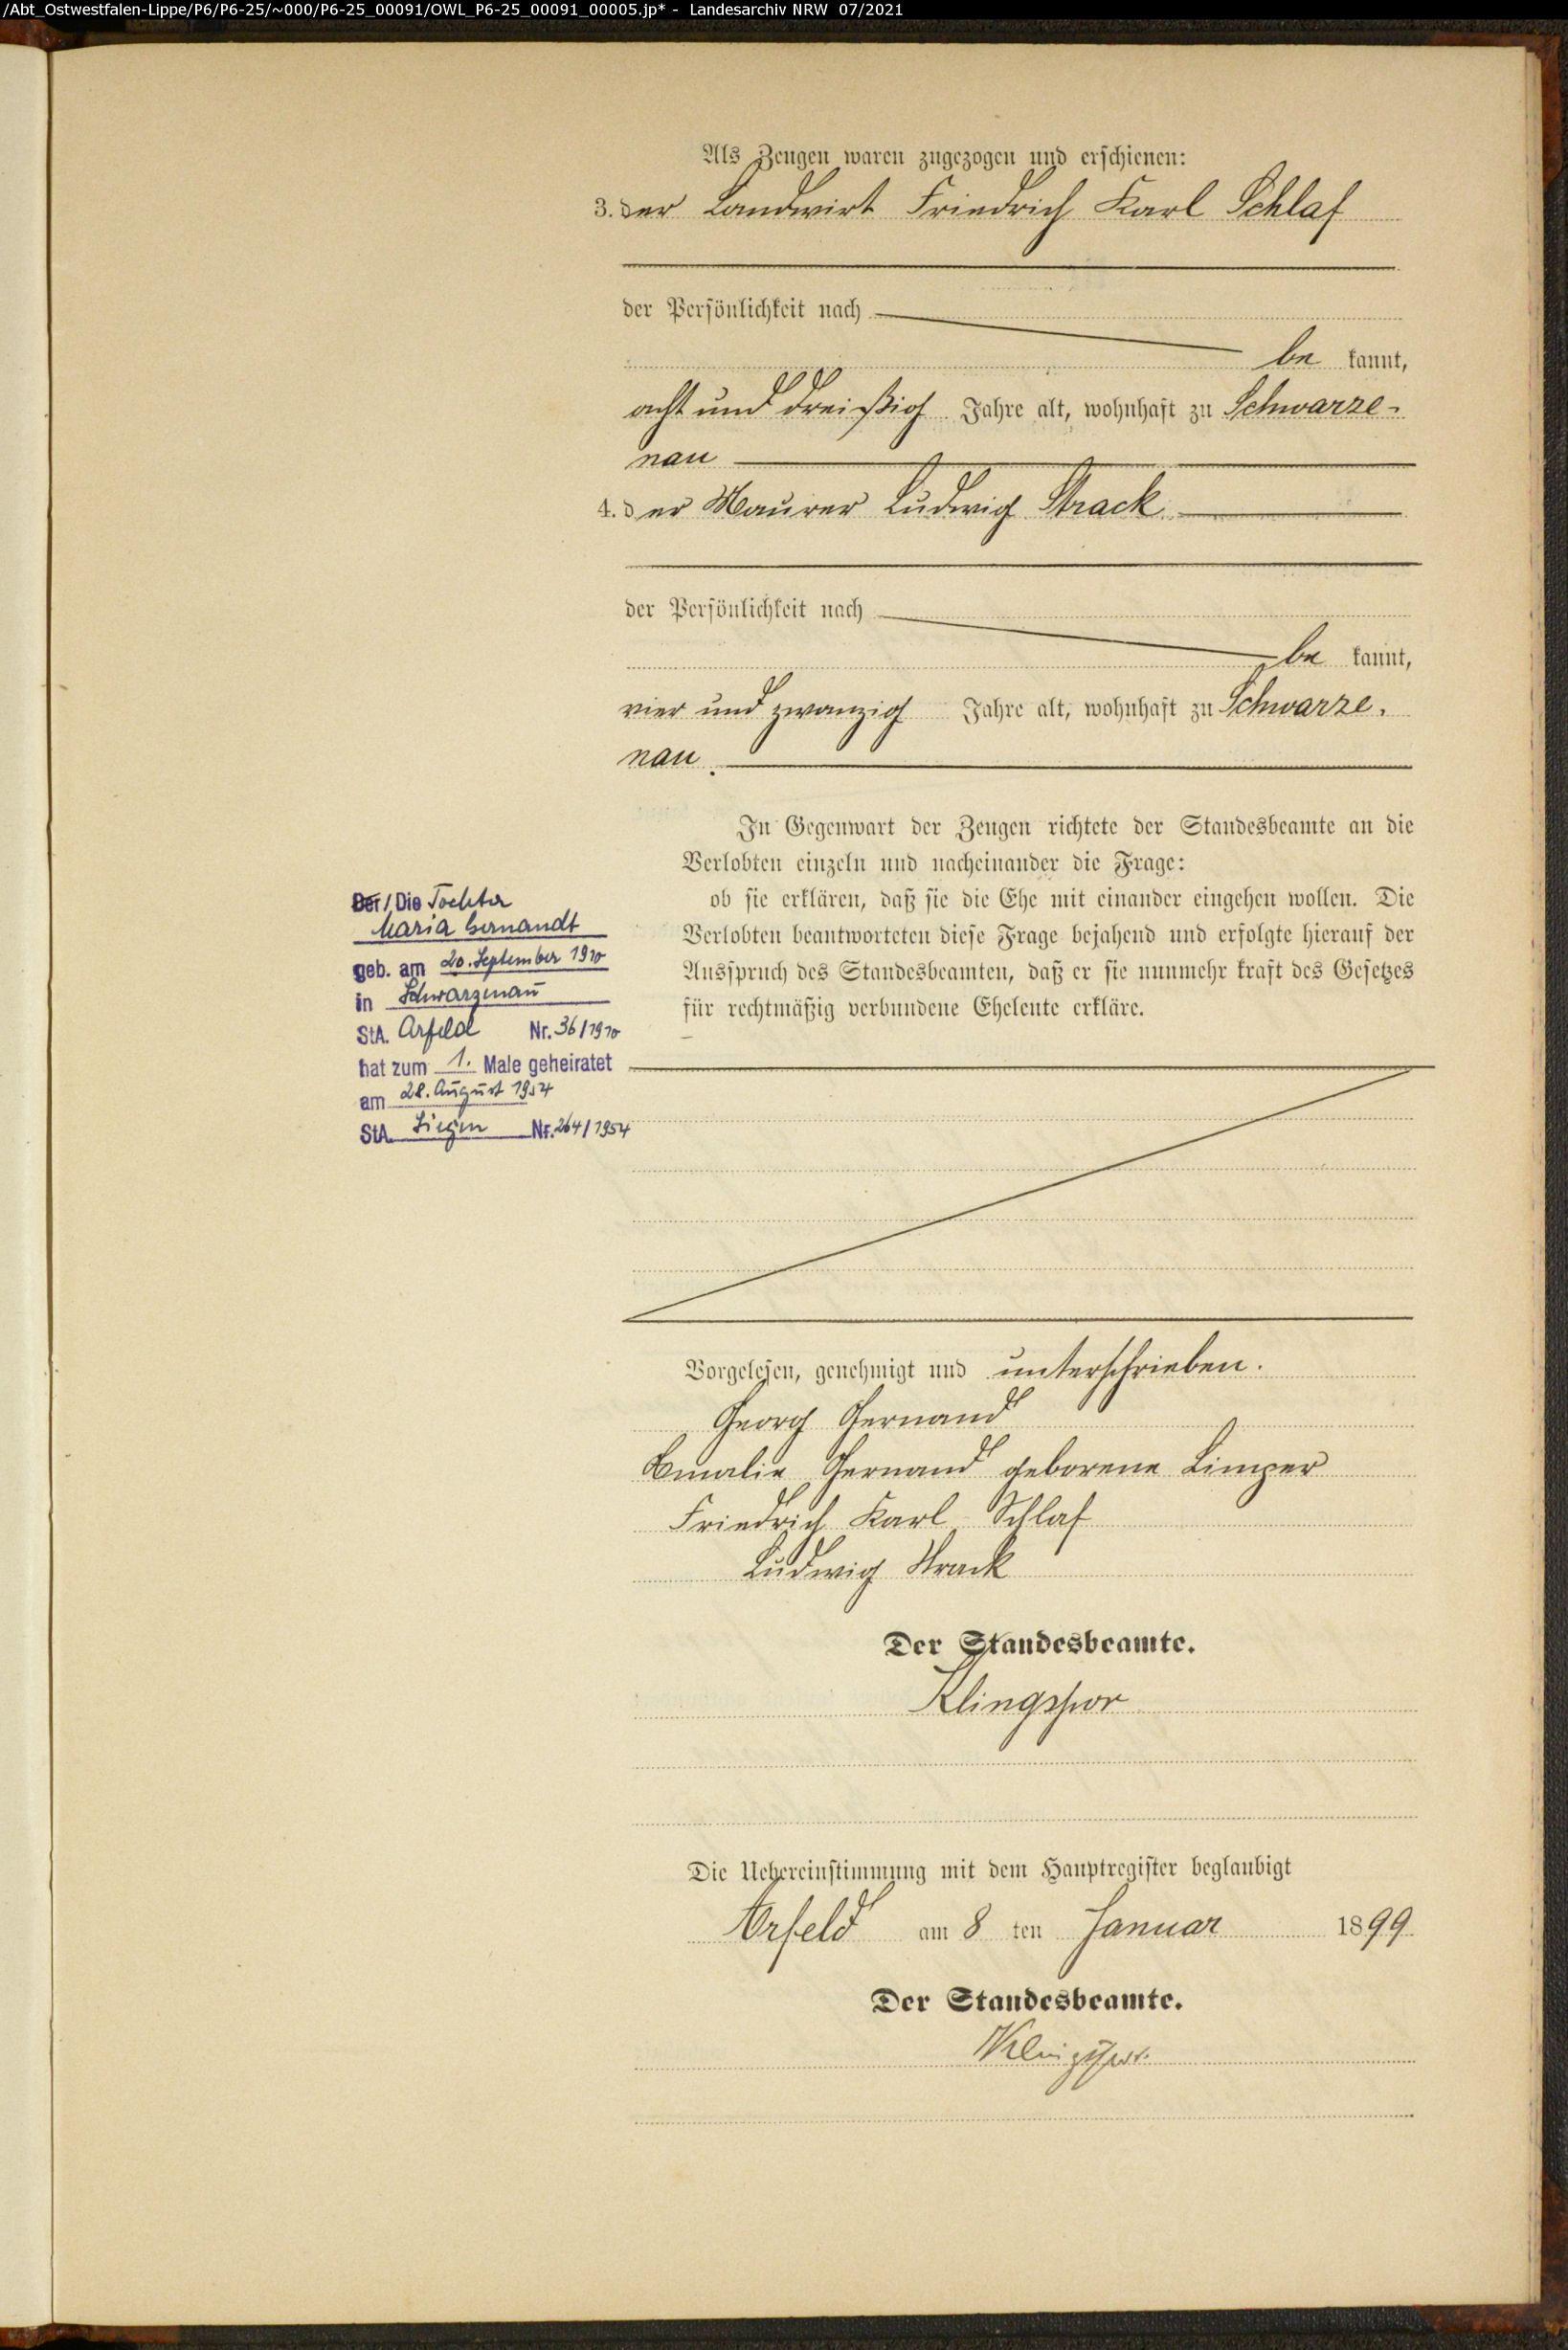 /Abt_Ostwestfalen-Lippe/P6/P6-25/~000/P6-25_00091/OWL_P6-25_00091_00005.jp* - Landesarchiv NRW 07/2021
Als Zeugen waren zugezogen und erschienen:
3. der Landwirt Friedrich Karl Schlaf
der Persönlichkeit nach
be kannt,
acht und dreißig Jahre alt, wohnhaft zu Schwarze-
nau
4. der Maurer Ludwig Strack
der Persönlichkeit nach
be kannt,
vier und zwanzig Jahre alt, wohnhaft zu Schwarze.
nau.
In Gegenwart der Zeugen richtete der Standesbeamte an die
Verlobten einzeln und nacheinander die Frage:
ob sie erklären, daß sie die Ehe mit einander eingehen wollen. Die
Verlobten beantworteten diese Frage bejahend und erfolgte hierauf der
Ausspruch des Standesbeamten, daß er sie nunmehr kraft des Gesetzes
für rechtmäßig verbundene Eheleute erkläre.
Der / Die Tochter
Maria Gernandt
geb. am 20. September 1910
in Schwarzenau
StA. Arfeld Nr. 36/1910
hat zum 1. Male geheiratet
am 28. August 1954
StA. Siegen Nr. 264/1954
Vorgelesen, genehmigt und unterschrieben.
Georg Gernand
Amalie Gernand geborene Limper
Friedrich Karl Schlaf
Ludwig Strack
Der Standesbeamte.
Klingspor
Die Uebereinstimmung mit dem Hauptregister beglaubigt
Arfeld am 8 ten Januar 1899
Der Standesbeamte.
Klingspor.